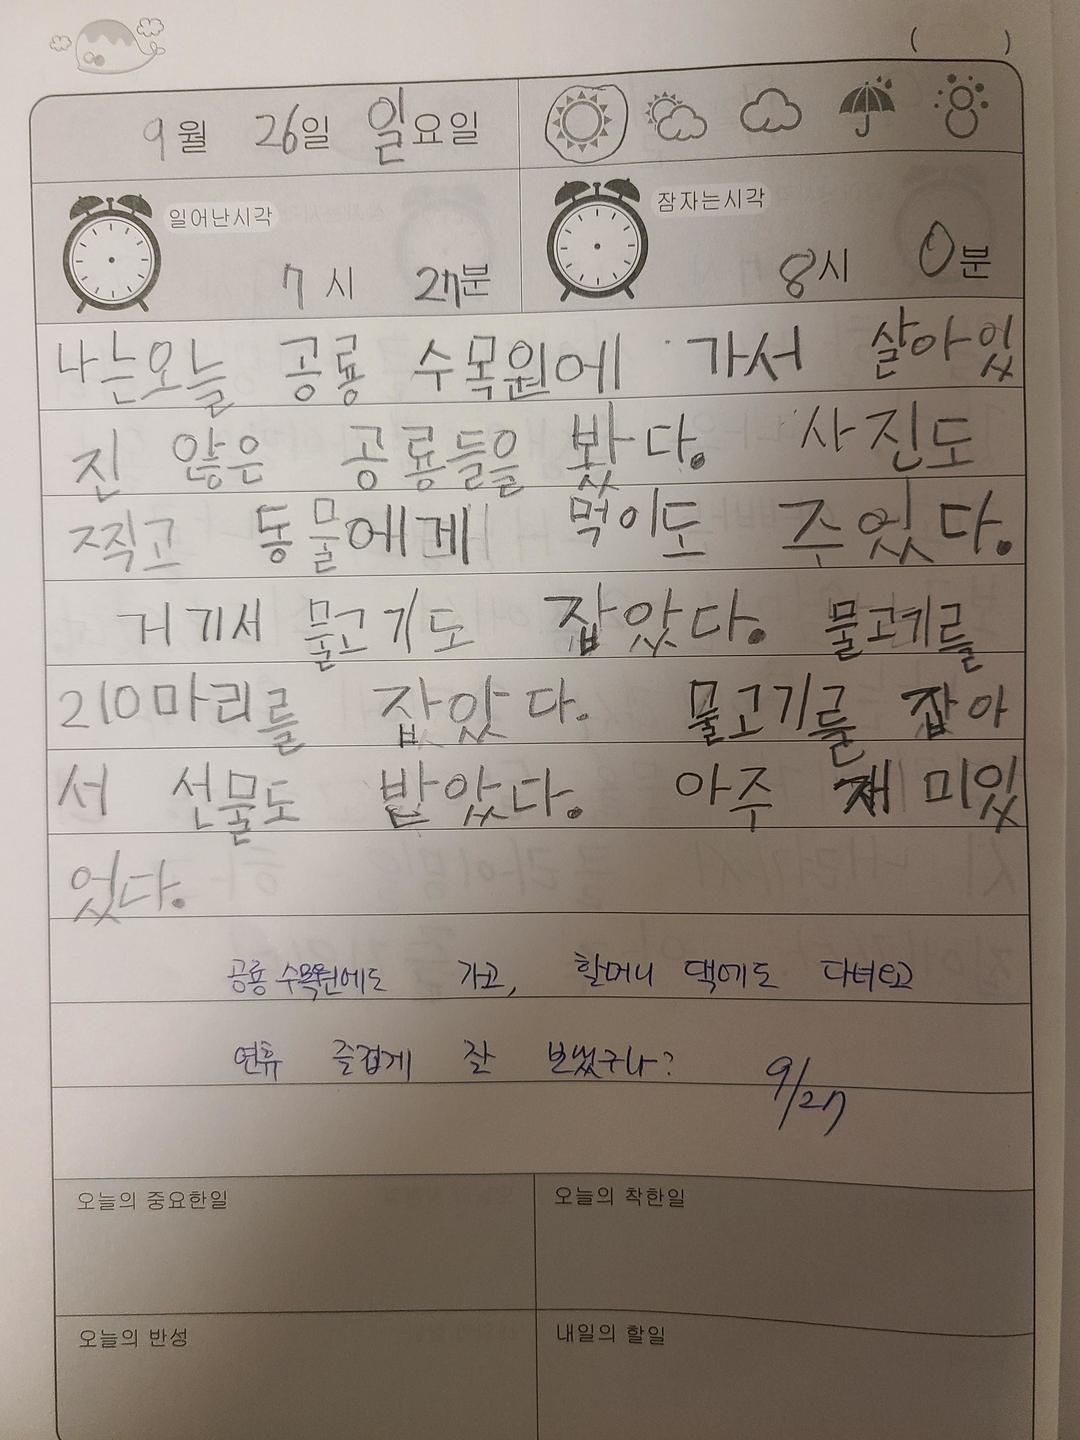 (          )
9월 26일 일요일
일어난시각
7시 27분
잠자는시각
8시 0분
나는오늘 공룡 수목원에 가서 살아있
진 않은 공룡들을 봤다. 사진도
찍고 동물에게 먹이도 주었다.
거기서 물고기도 잡았다. 물고기를
210마리를 잡았다. 물고기를 잡아
서 선물도 받았다. 아주 재미있
었다.
공룡 수목원에도 가고, 할머니 댁에도 다녀오고
연휴 즐겁게 잘 보냈구나?
9/27
오늘의 중요한일
오늘의 착한일
오늘의 반성
내일의 할일